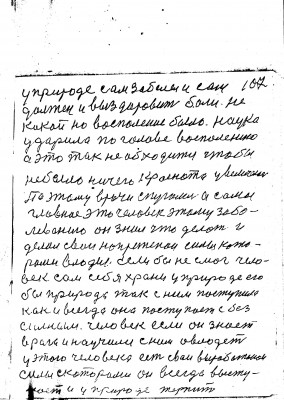 у природе сам заболел и сам 107
должен и выздаровит боли. не
какой но восполение было. наука
ударила по голове восполению
а это так не обходити чтобы
небыло ничего краснота увеличени
Поэтому врачи спугали а самое
главное это человек этому забо-
леванию он знал что делат и
делал свои напретенои силы кото-
рыми влодил. если бы не смог чело-
век сам себя храни у природе его
бы природа так с ним поступила
как и всегда она поступает с без
силным. человек если он знает
врага и научился сним овлодет
у этого человека ест сваи выработаные
силы скоторыми он всегда высту-
пает и у природе терпит